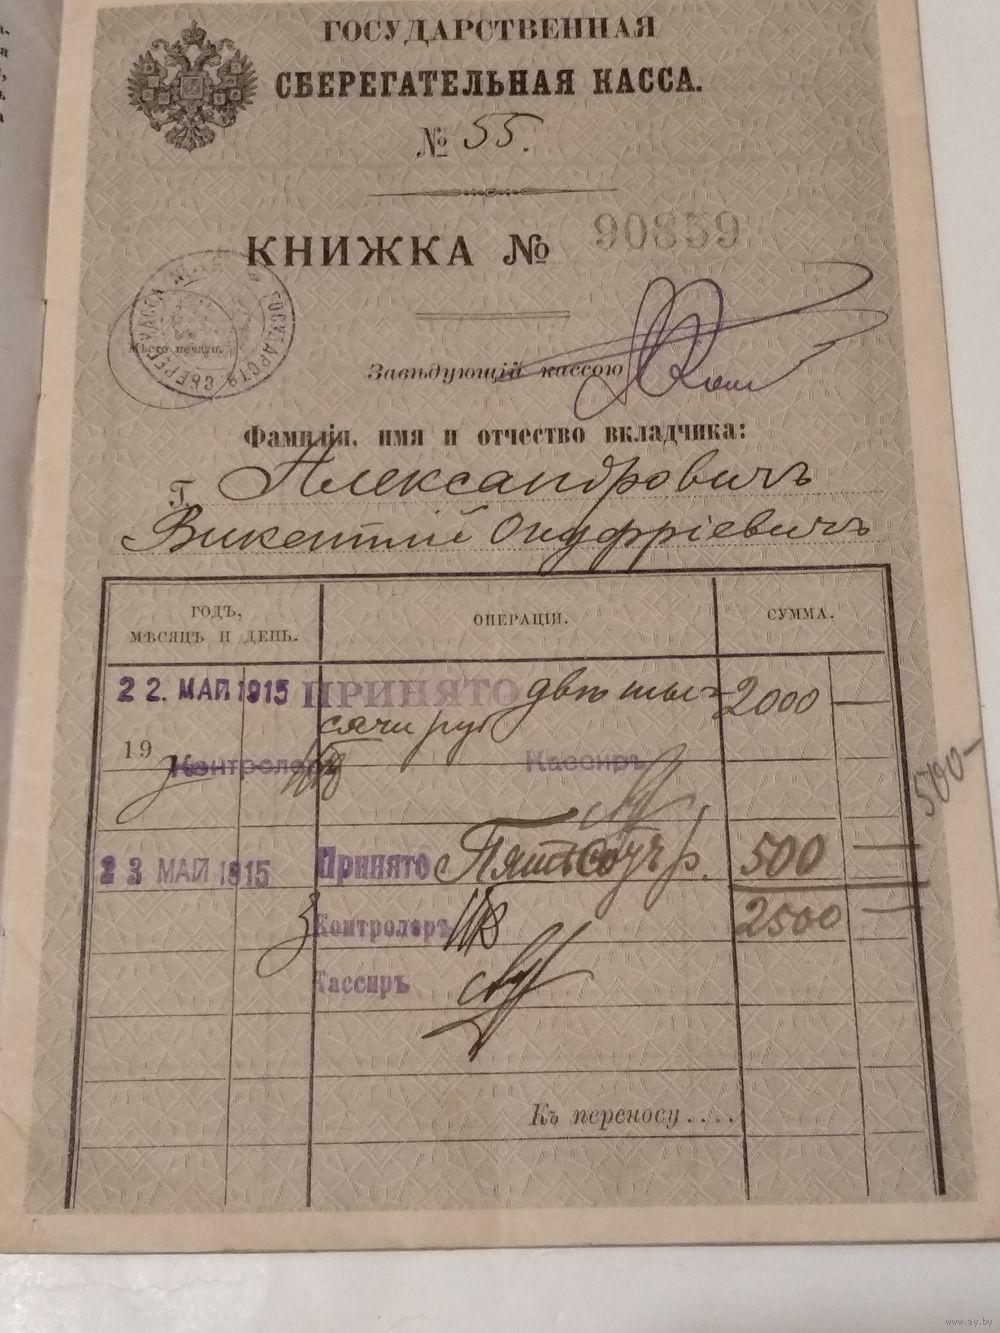 ГОСУДАРСТВЕННАЯ
СБЕРЕГАТЕЛЬНАЯ КАССА.
№ 55.
КНИЖКА № 90859
Мѣсто печати.
Завѣдующій кассою
Фамилія, имя и отчество вкладчика:
Г. Александровичъ
Викентій Онуфріевичъ
ГОДЪ,
МѢСЯЦЪ И ДЕНЬ.
ОПЕРАЦІИ.
СУММА.
22. МАЙ 1915 ПРИНЯТО двѣ ты- 2000 —
сячи руб
19
Контролеръ Кассиръ
500 —
23 МАЙ 1915 Принято Пятьсотъ р. 500 —
Контролеръ 2500 —
Кассиръ
Къ переносу . . . .
www.ay.by